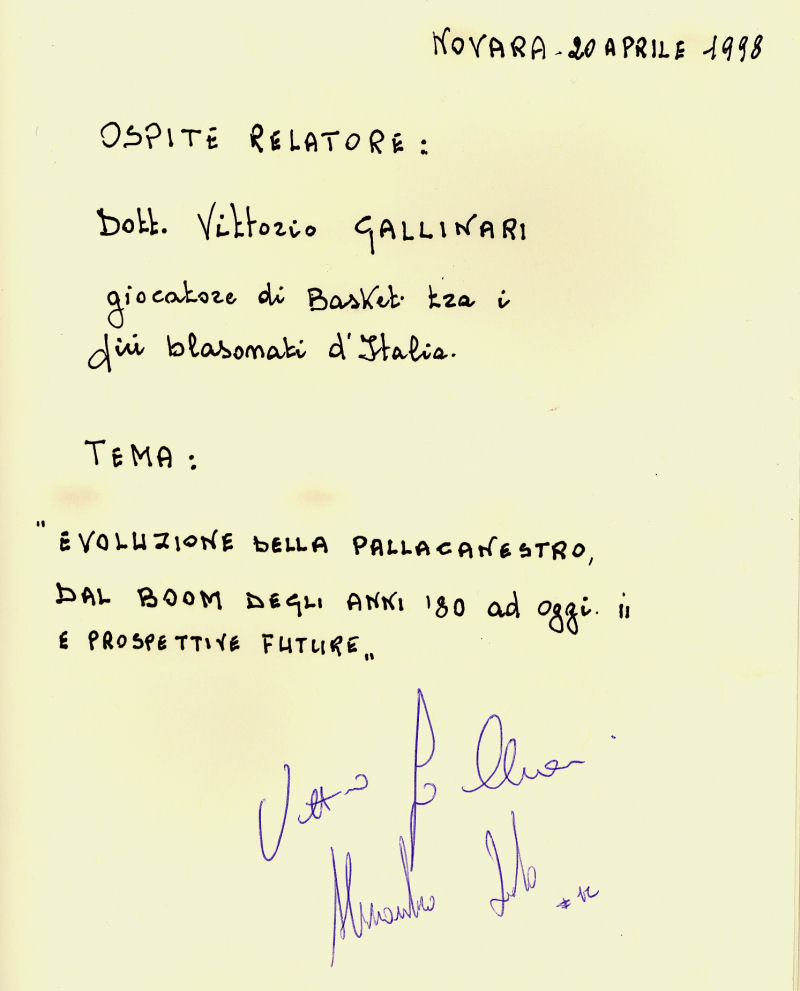 NOVARA - 20 APRILE 1998
OSPITE RELATORE:
Dott. Vittorio GALLINARI
giocatore di Basket tra i
più blasonati d'Italia.
TEMA:
"EVOLUZIONE DELLA PALLACANESTRO,
DAL BOOM DEGLI ANNI '80 ad oggi.
E PROSPETTIVE FUTURE"
Vittorio Gallinari